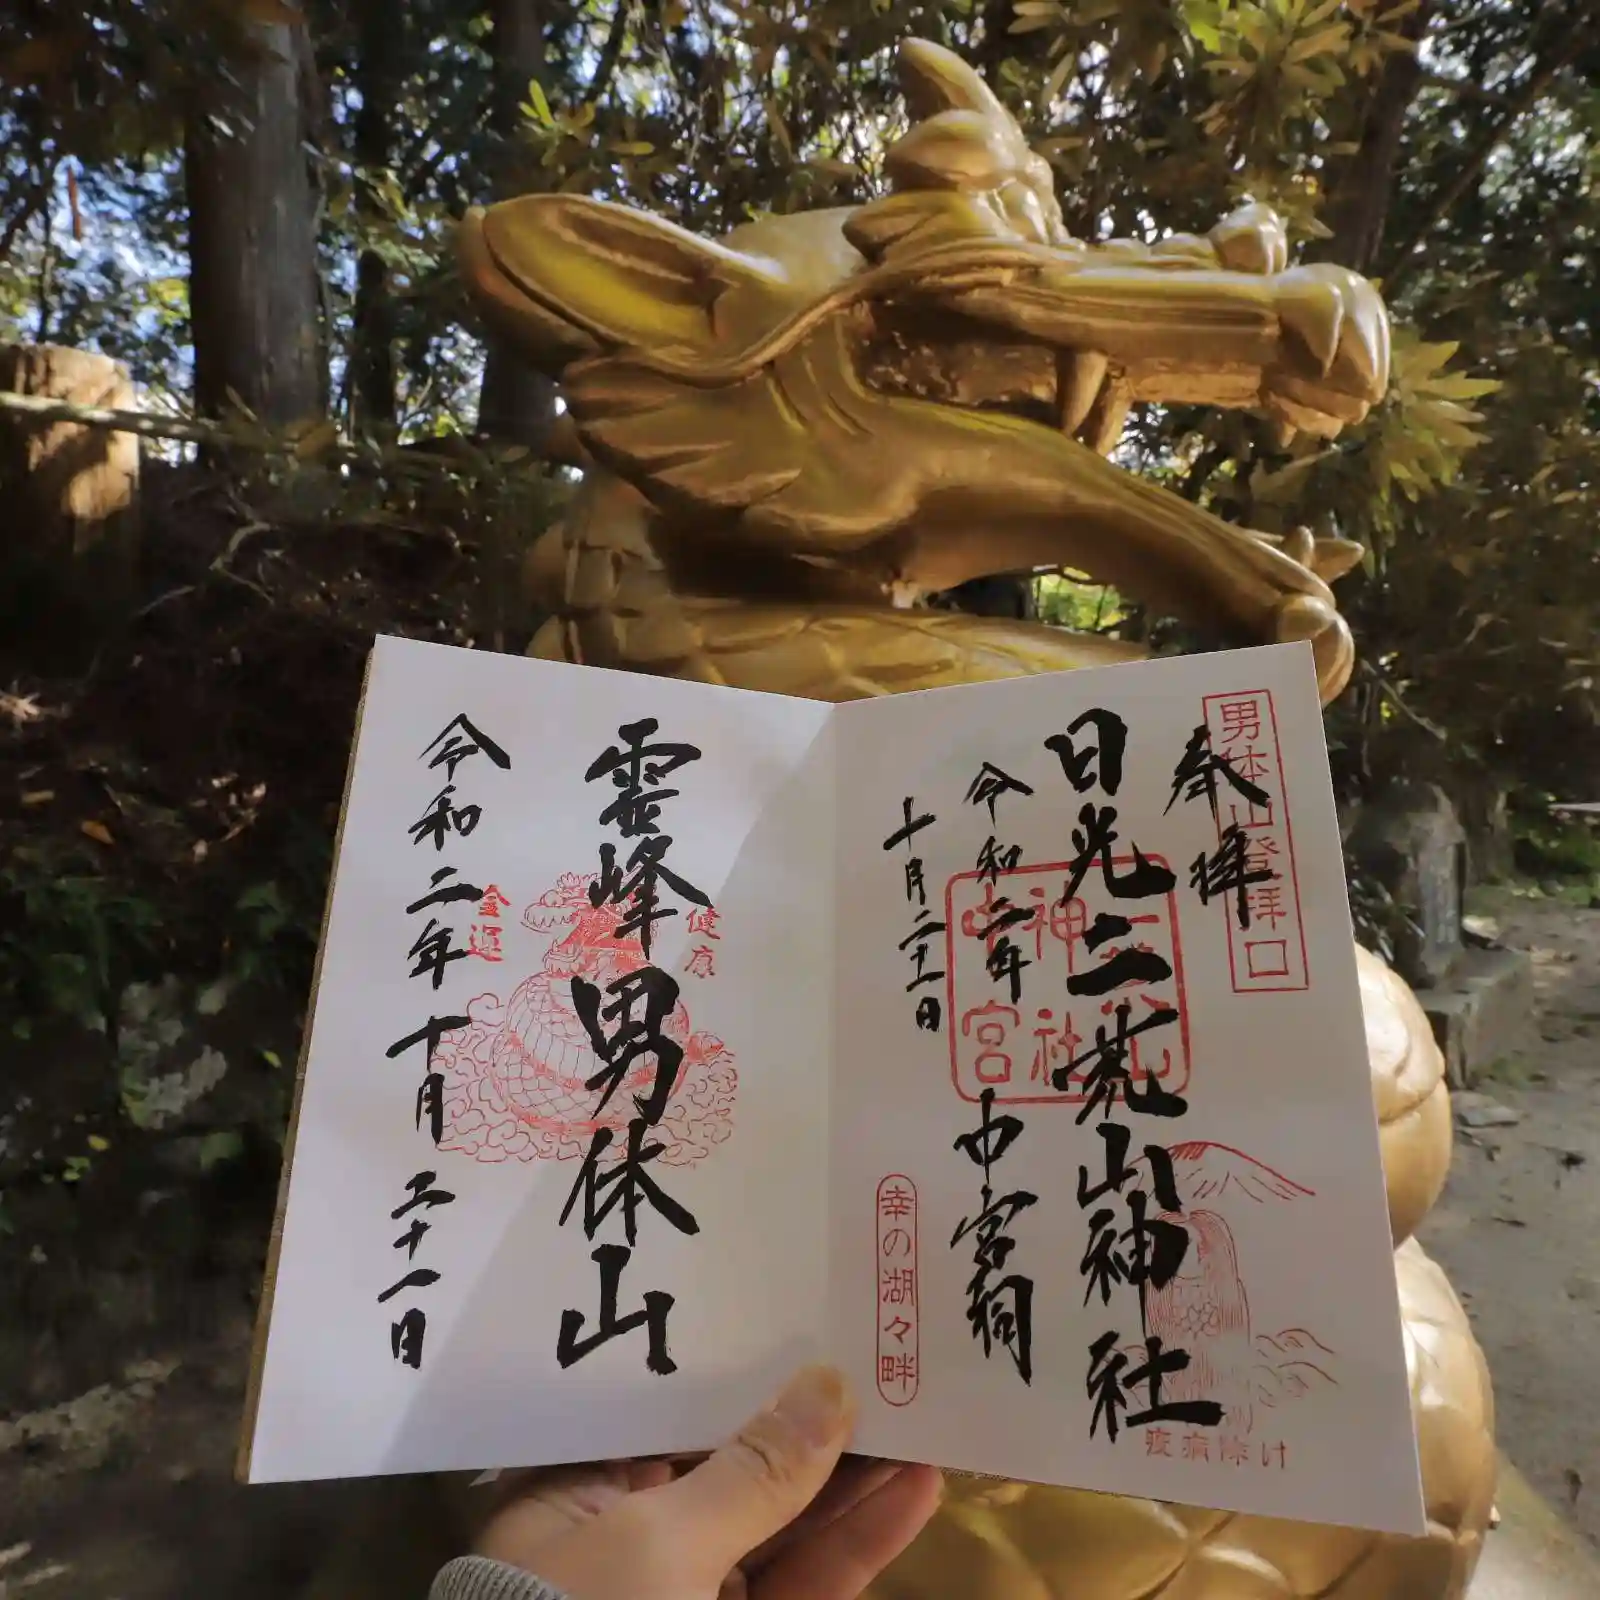 男体山登拝口
奉拝
日光二荒山神社
中宮祠
令和二年
十月二十一日
幸の湖々畔
疫病除け
霊峰男体山
健康
金運
令和二年十月二十一日